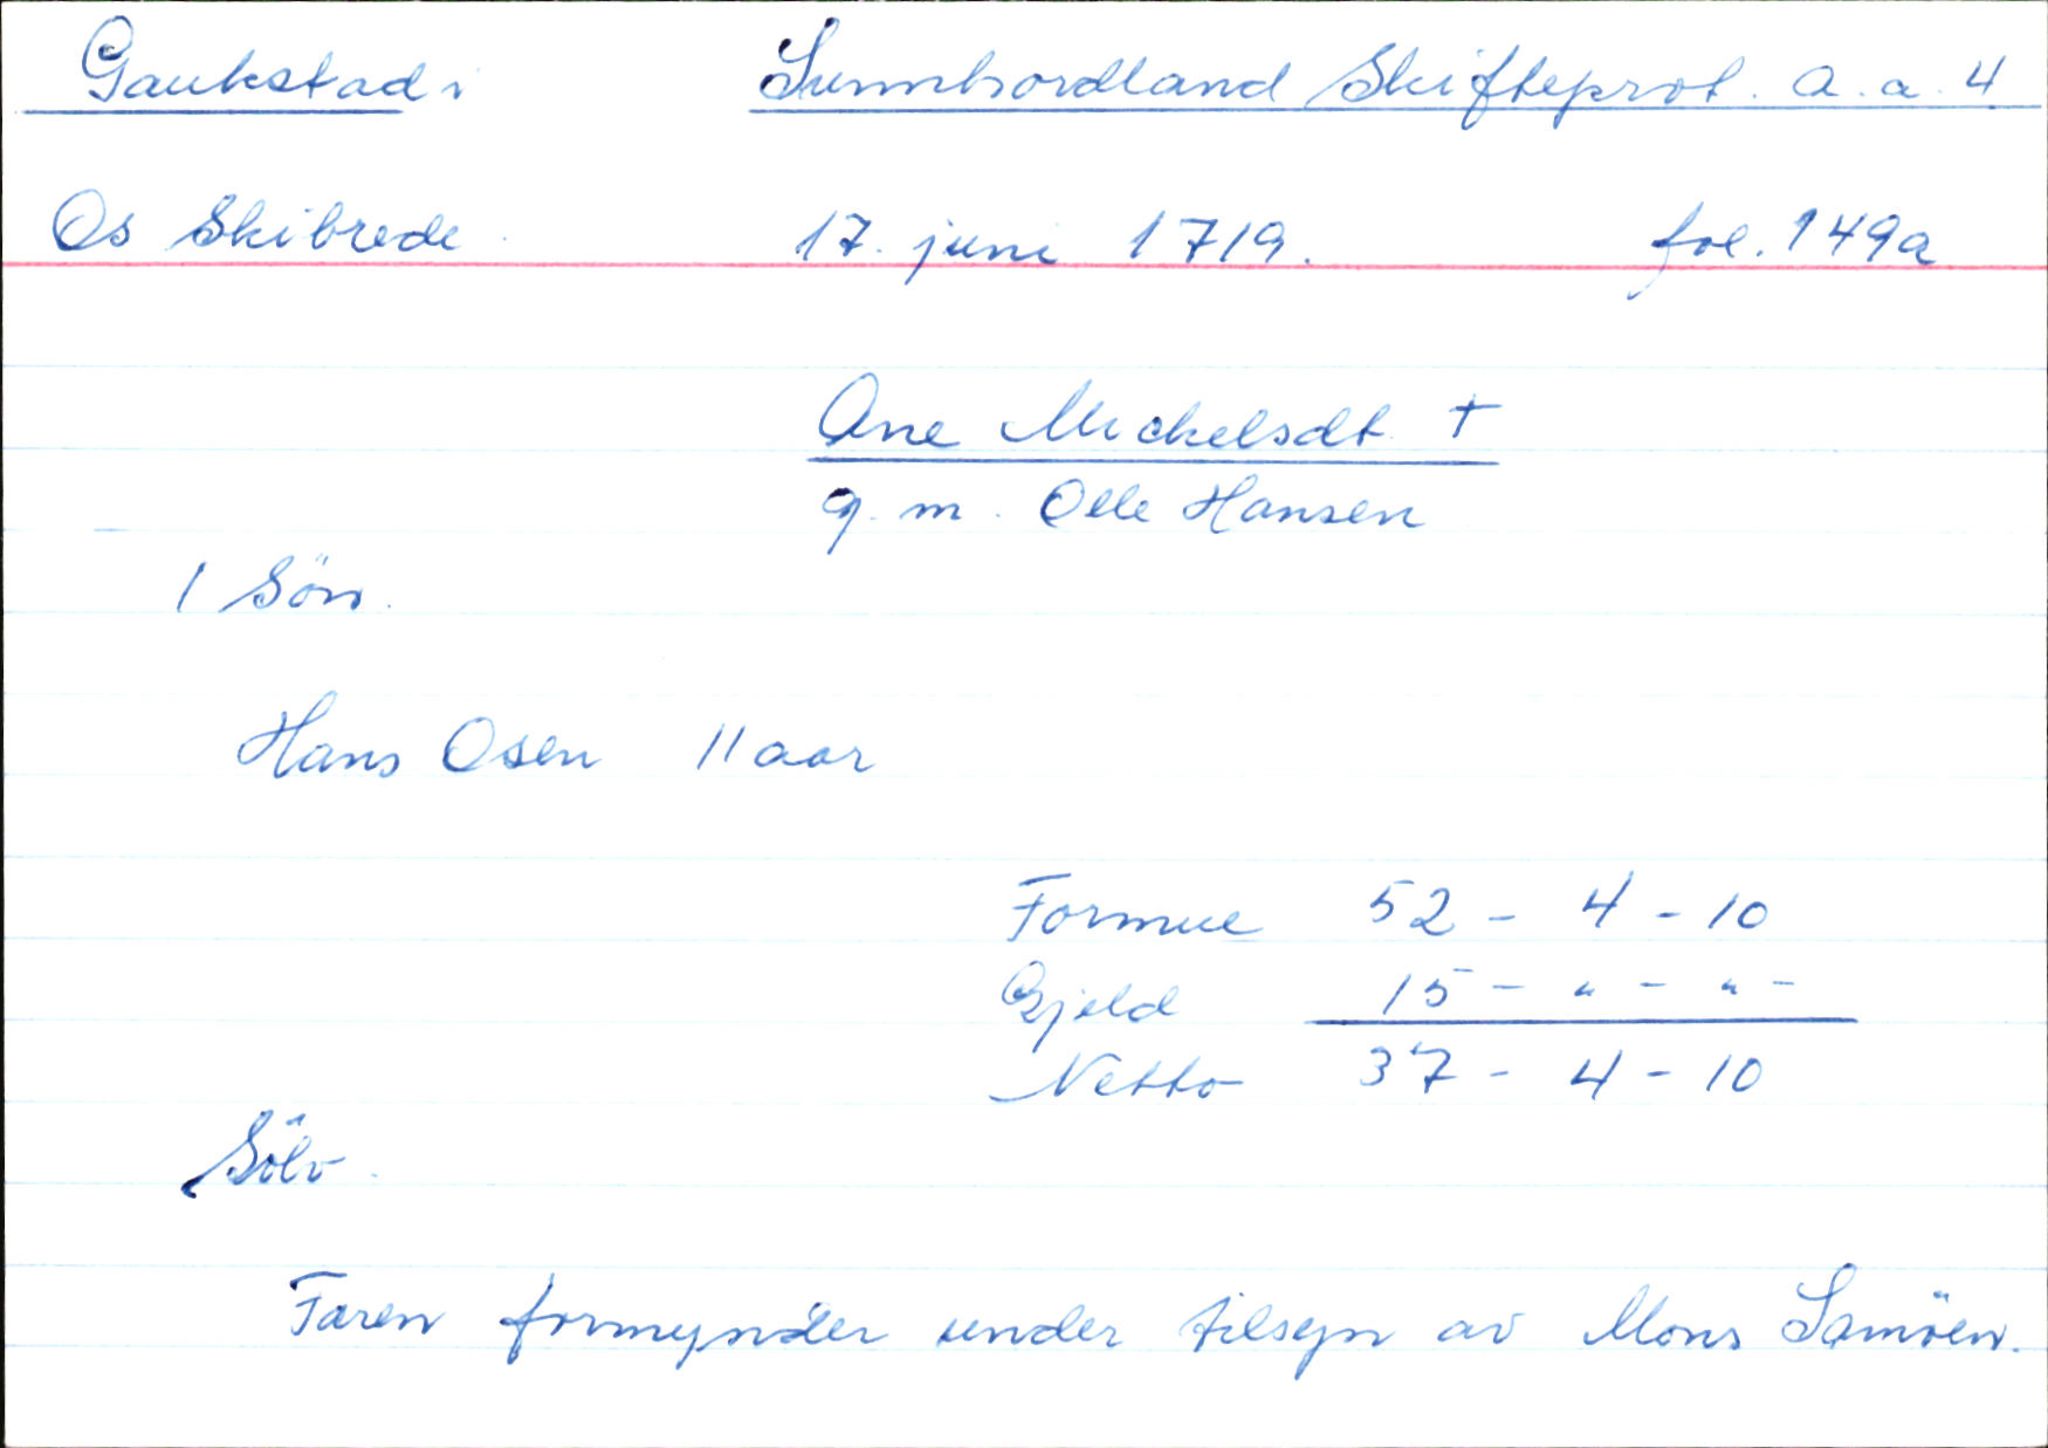 Gaukstad i Sunnhordland Skifteprot. A.a.4
Os Skibrede 17. juni 1719. fol. 149a
Ane Mickelsdt. †
g. m. Olle Hansen
1 Sön.
Hans Osen 11 aar
Formue 52 - 4 - 10
Gjeld 15 - " - " -
Netto 37 - 4 - 10
Sölv.
Faren formynder under tilsyn av Mons Samöen.